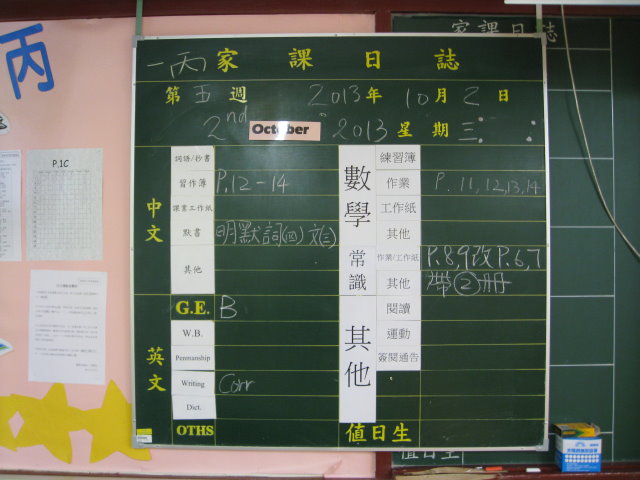 丙
家課日誌
一丙家課日誌
第五週 2013年10月2日
2nd October 2013 星期三
P.1C
中文
詞語/抄書
習作簿 P.12-14
課業工作紙
默書 明默詞(四)文(三)
其他
英文
G.E. B
W.B.
Penmanship
Writing Corr
Dict.
OTHS
數學
練習簿
作業 P. 11,12,13,14
工作紙
其他
常識
作業/工作紙 P.8,9改P.6,7
其他 帶②冊
其他
閱讀
運動
簽閱通告
值日生
值日生